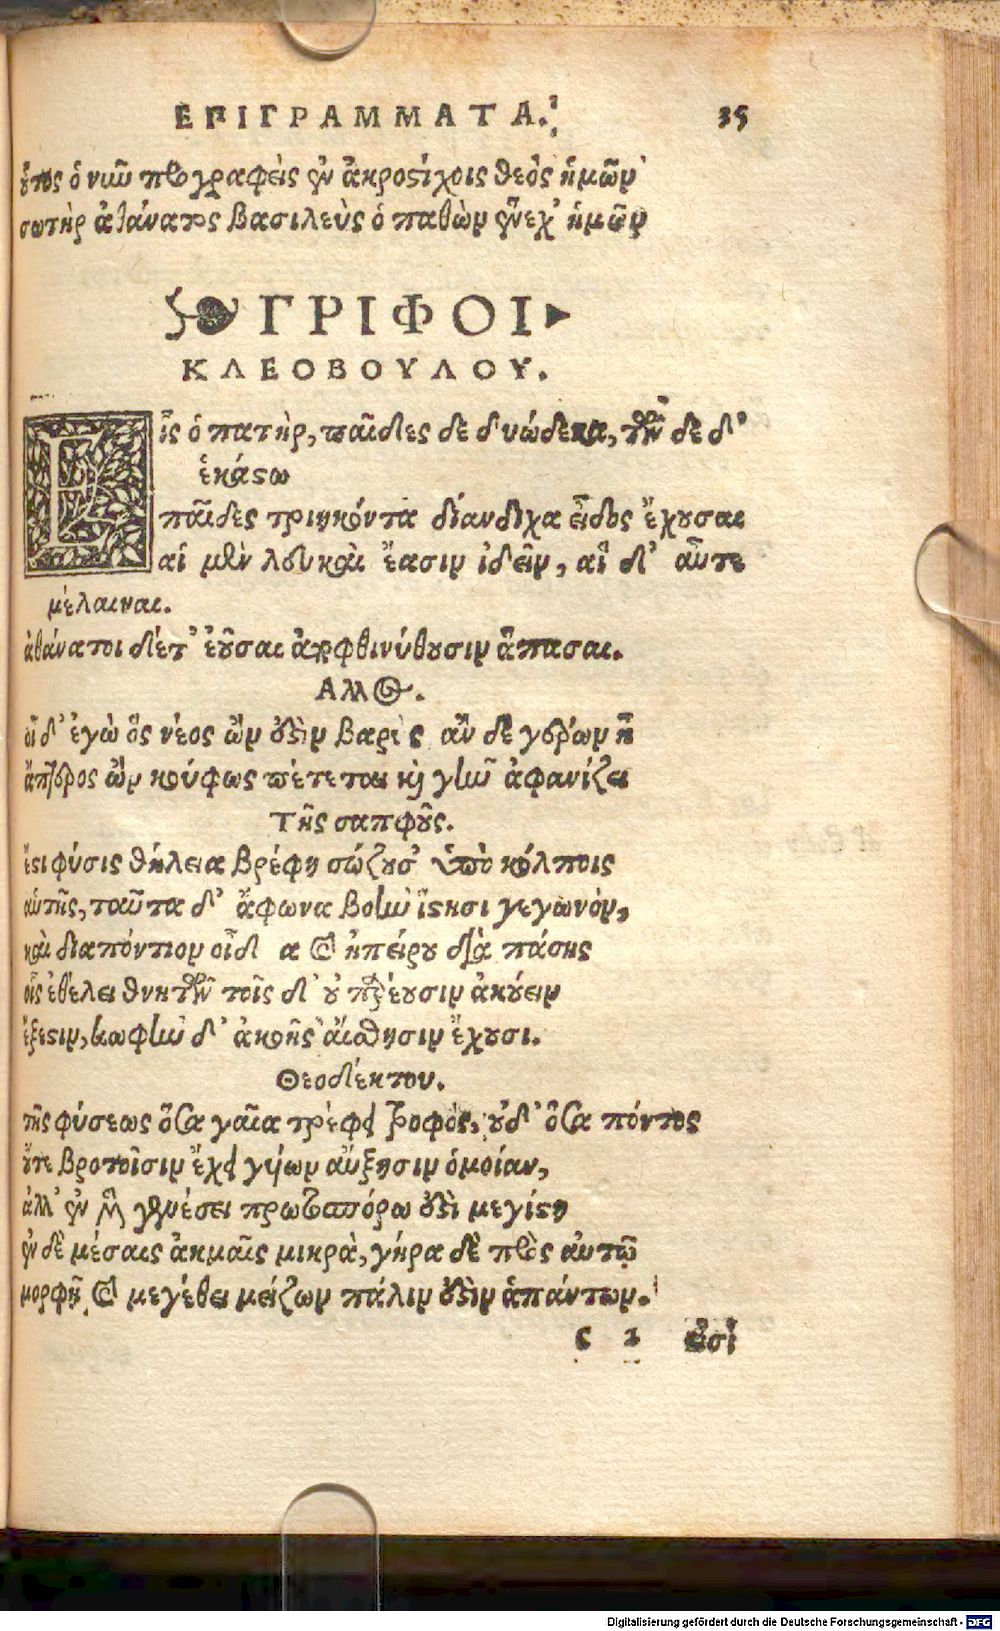 ΕΠΙΓΡΑΜΜΑΤΑ. 35
οὗτος ὁ νῦν προγραφεὶς ἐν ἀκροστίχοις θεὸς ἡμῶν
σωτὴρ ἀθάνατος βασιλεὺς ὁ παθὼν ἕνεχ' ἡμῶν
ΓΡΙΦΟΙ
ΚΛΕΟΒΟΥΛΟΥ.
Εἷς ὁ πατὴρ, παῖδες δε δυώδεκα, τῶν δε δ'
ἑκάστω
παῖδες τριηκόντα διάνδιχα εἶδος ἔχουσαι
αἱ μὲν λευκαὶ ἔασιν ἰδεῖν, αἳ δ' αὖτε
μέλαιναι.
ἀθάνατοι δέτ' ἐοῦσαι ἀποφθινύθουσιν ἅπασαι.
ΑΛΛΟ.
οἶδ' ἐγὼ ὃς νέος ὢν οὐδὲν βαρὺς ἂν δὲ γέρων ᾖ
ἄπτερος ὢν κούφως πέτεται καὶ γῆν ἀφανίζει
Τῆς σαπφοῦς.
ἔστι φύσις θήλεια βρέφη σώζουσ' ὑπὸ κόλποις
αὑτῆς, ταῦτα δ' ἄφωνα βοὴν ἵστησι γεγωνὸν,
καὶ διαπόντιον οἶδ α καὶ ἠπείρου διὰ πάσης
οἷς ἐθέλει θνητῶν τοῖς δ' οὐ παρέουσιν ἀκούειν
ἔξεστιν, κωφὴν δ' ἀκοῆς αἴσθησιν ἔχουσι.
Θεοδέκτου.
τῆς φύσεως ὅσα γαῖα τρέφει τροφὸς, οὐδ' ὅσα πόντος
οὔτε βροτοῖσιν ἔχει γυίων αὔξησιν ὁμοίαν,
ἀλλ' ἐν μὲν γενέσει πρωτοσπόρω ἐστὶ μεγίστη
ἐν δὲ μέσαις ἀκμαῖς μικρὰ, γήρα δὲ πρὸς αὐτῷ
μορφῇ καὶ μεγέθει μείζων πάλιν ἐστὶν ἁπάντων.
ς 2 εἰσὶ
Digitalisierung gefördert durch die Deutsche Forschungsgemeinschaft - DFG